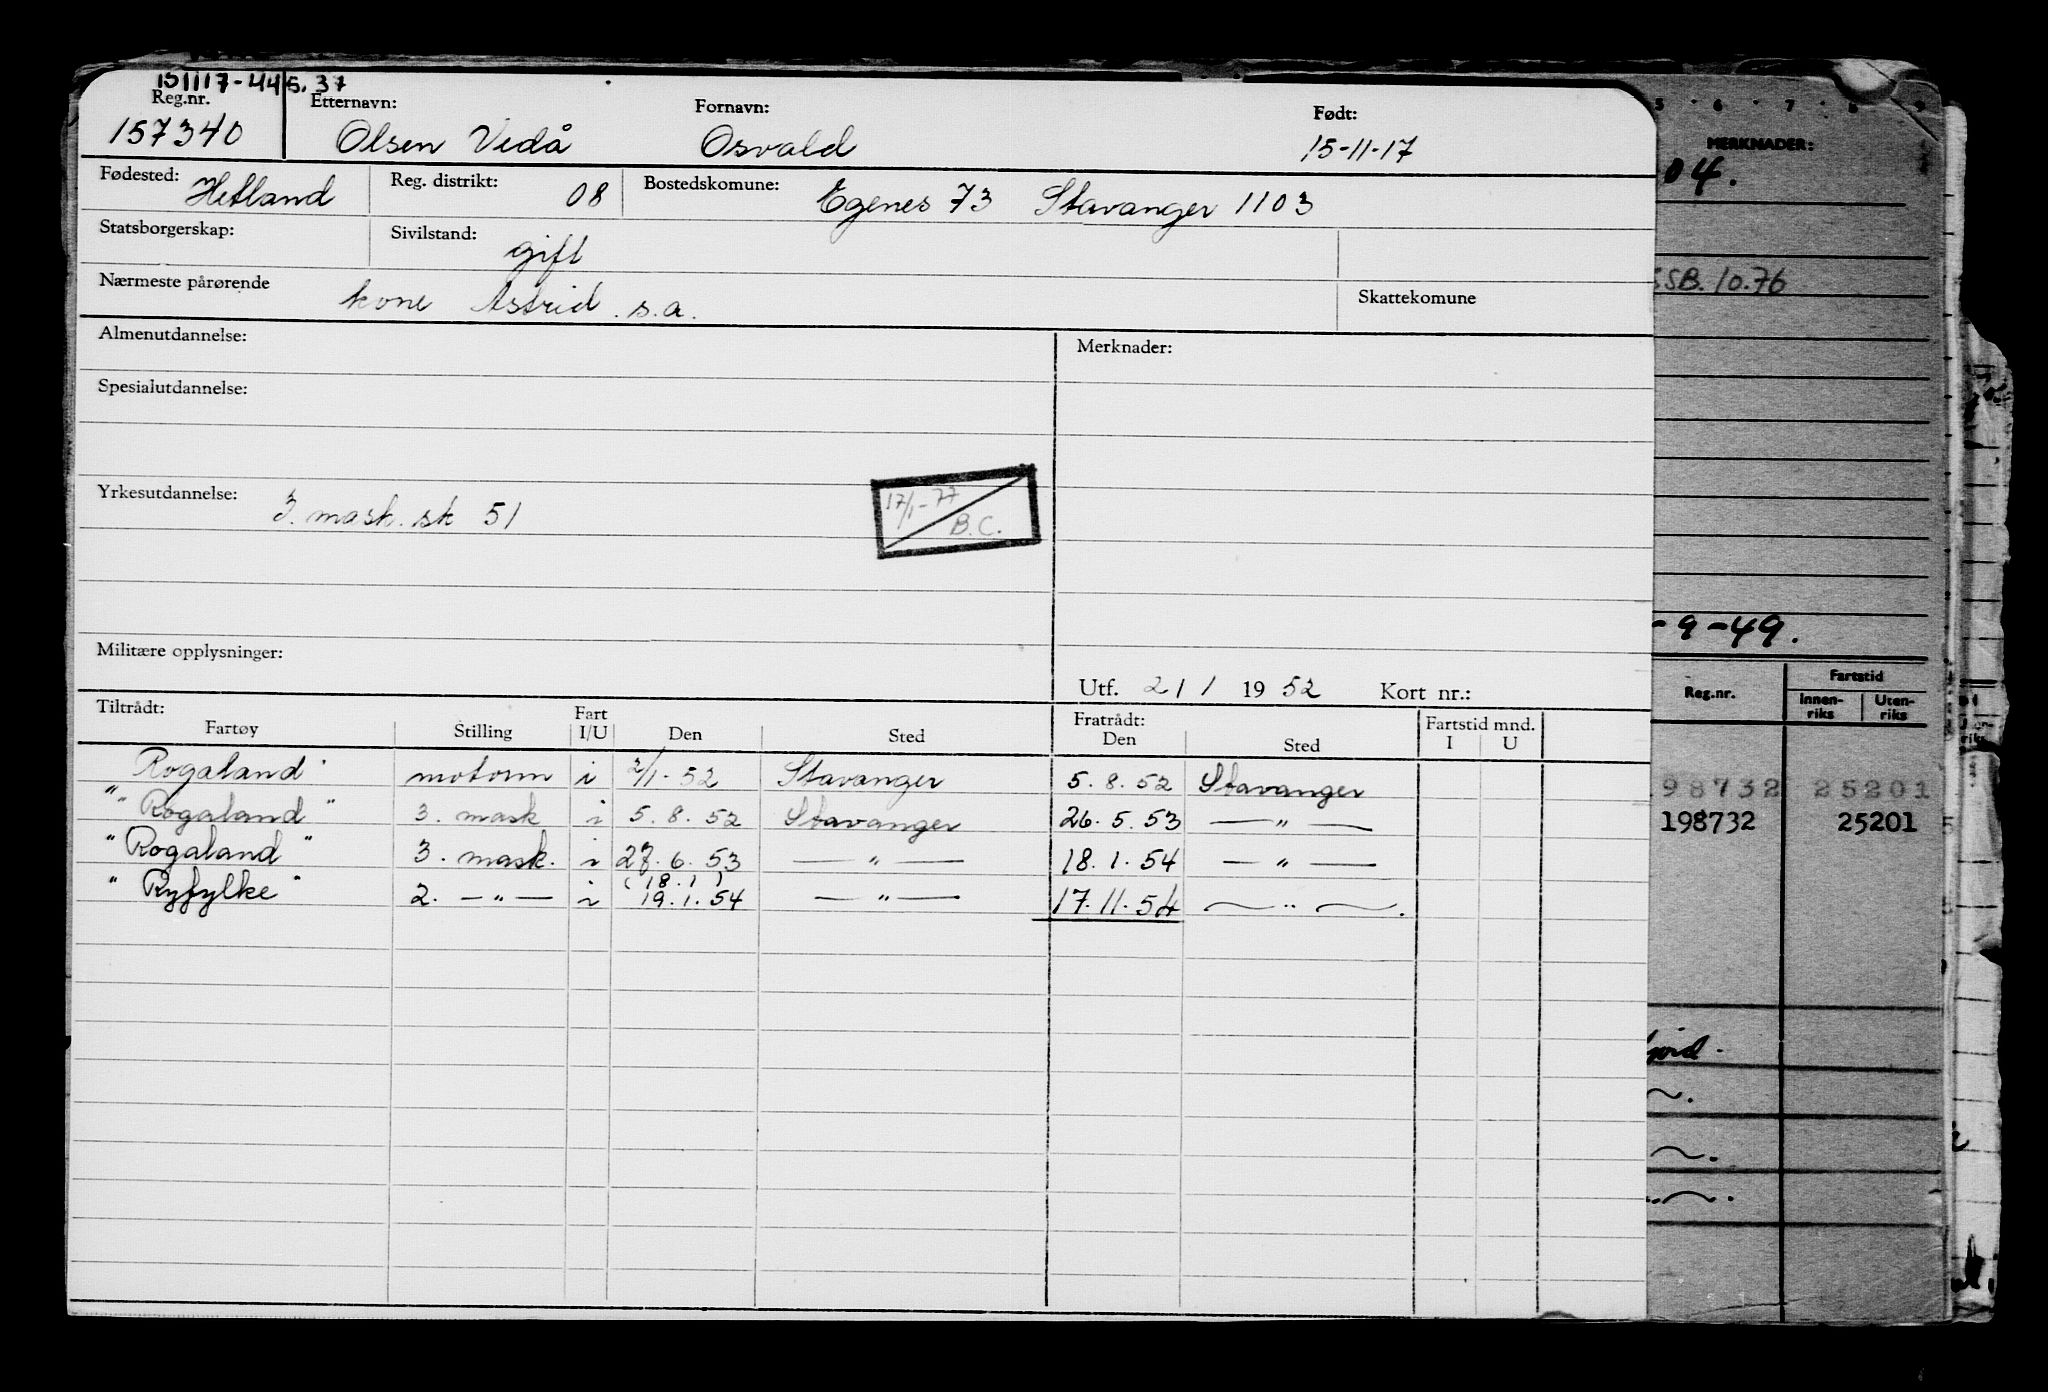 151117-445.37
Reg.nr. Etternavn: Fornavn: Født:
157340 Olsen Vedå Osvald 15-11-17
Fødested: Hetland Reg. distrikt: 08 Bostedskomune: Egenes 73 Stavanger 1103
Statsborgerskap: Sivilstand: gift
Nærmeste pårørende kone Astrid. s.a. Skattekomune
Almenutdannelse: Merknader:
Spesialutdannelse:
Yrkesutdannelse: 3. mask. sk 51
17/1-77
B.C.
Militære opplysninger:
Utf. 2 / 1 19 52 Kort nr.:
Tiltrådt: Fart Fratrådt: Fartstid mnd.
Fartøy Stilling I/U Den Sted Den Sted I U
Rogaland" motorm i 2/1-52 Stavanger 5.8.52 Stavanger
"Rogaland" 3. mask i 5.8.52 Stavanger 26.5.53 — " —
"Rogaland" 3. mask. i 27.6.53 — " — 18.1.54 — " —
(18.1)
"Ryfylke" 2. — " — i 19.1.54 — " — 17.11.54 — " —.
5 6 7 8 9
MERKNADER:
04.
SSB. 10.76
-9-49.
Reg.nr. Fartstid
Innen-riks Uten-riks
98732 25201
198732 25201